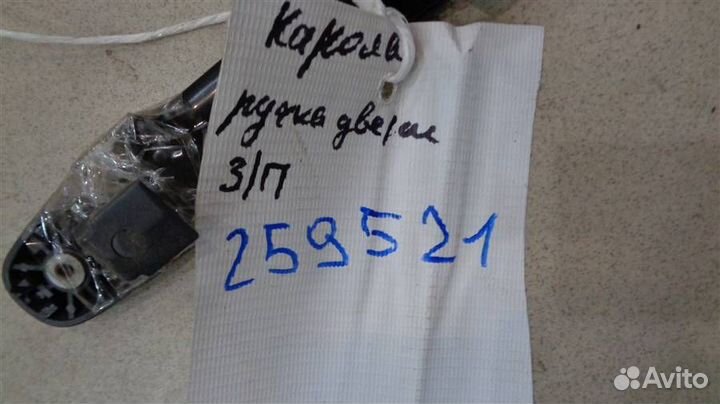 Карола
ручка двери
З/П
259521
Avito